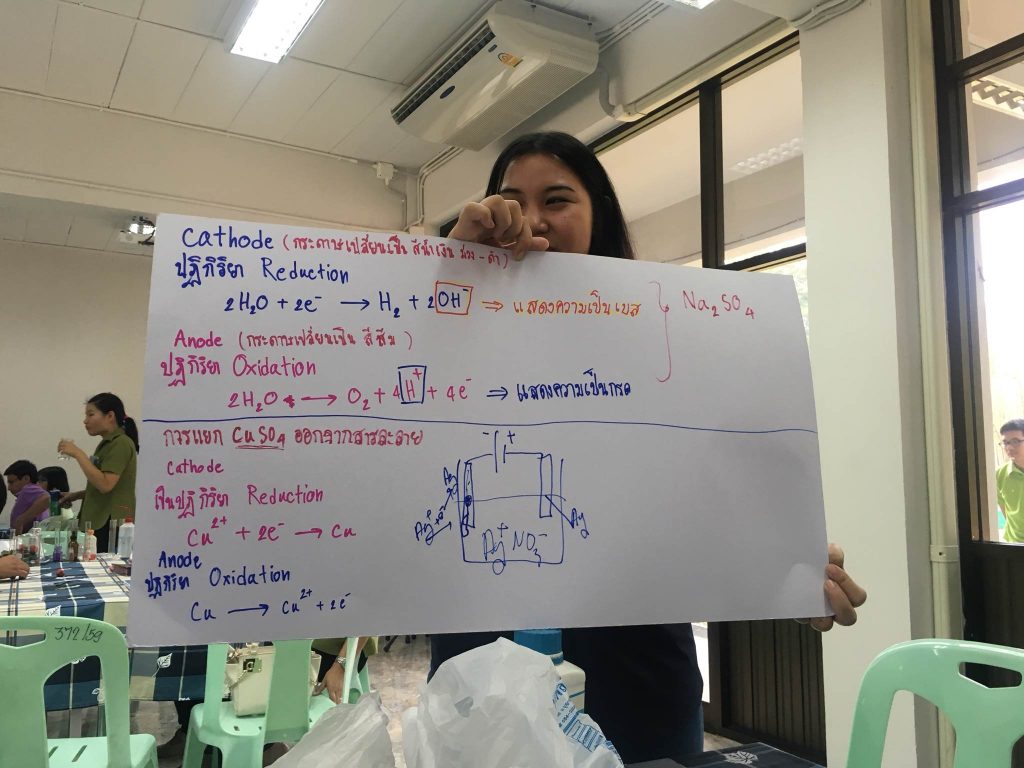 Cathode (กระดาษเปลี่ยนเป็น สีน้ำเงิน ม่วง - ดำ)
ปฏิกิริยา Reduction
2H₂O + 2e⁻ → H₂ + 2OH⁻ ⇒ แสดงความเป็นเบส
Na₂SO₄
Anode (กระดาษเปลี่ยนเป็น สีส้ม)
ปฏิกิริยา Oxidation
2H₂O → O₂ + 4H⁺ + 4e⁻ ⇒ แสดงความเป็นกรด
การแยก CuSO₄ ออกจากสารละลาย
Cathode
เป็นปฏิกิริยา Reduction
Cu²⁺ + 2e⁻ → Cu
Anode
ปฏิกิริยา Oxidation
Cu → Cu²⁺ + 2e⁻
- +
Ag
Ag
Ag⁺ NO₃⁻
372/59